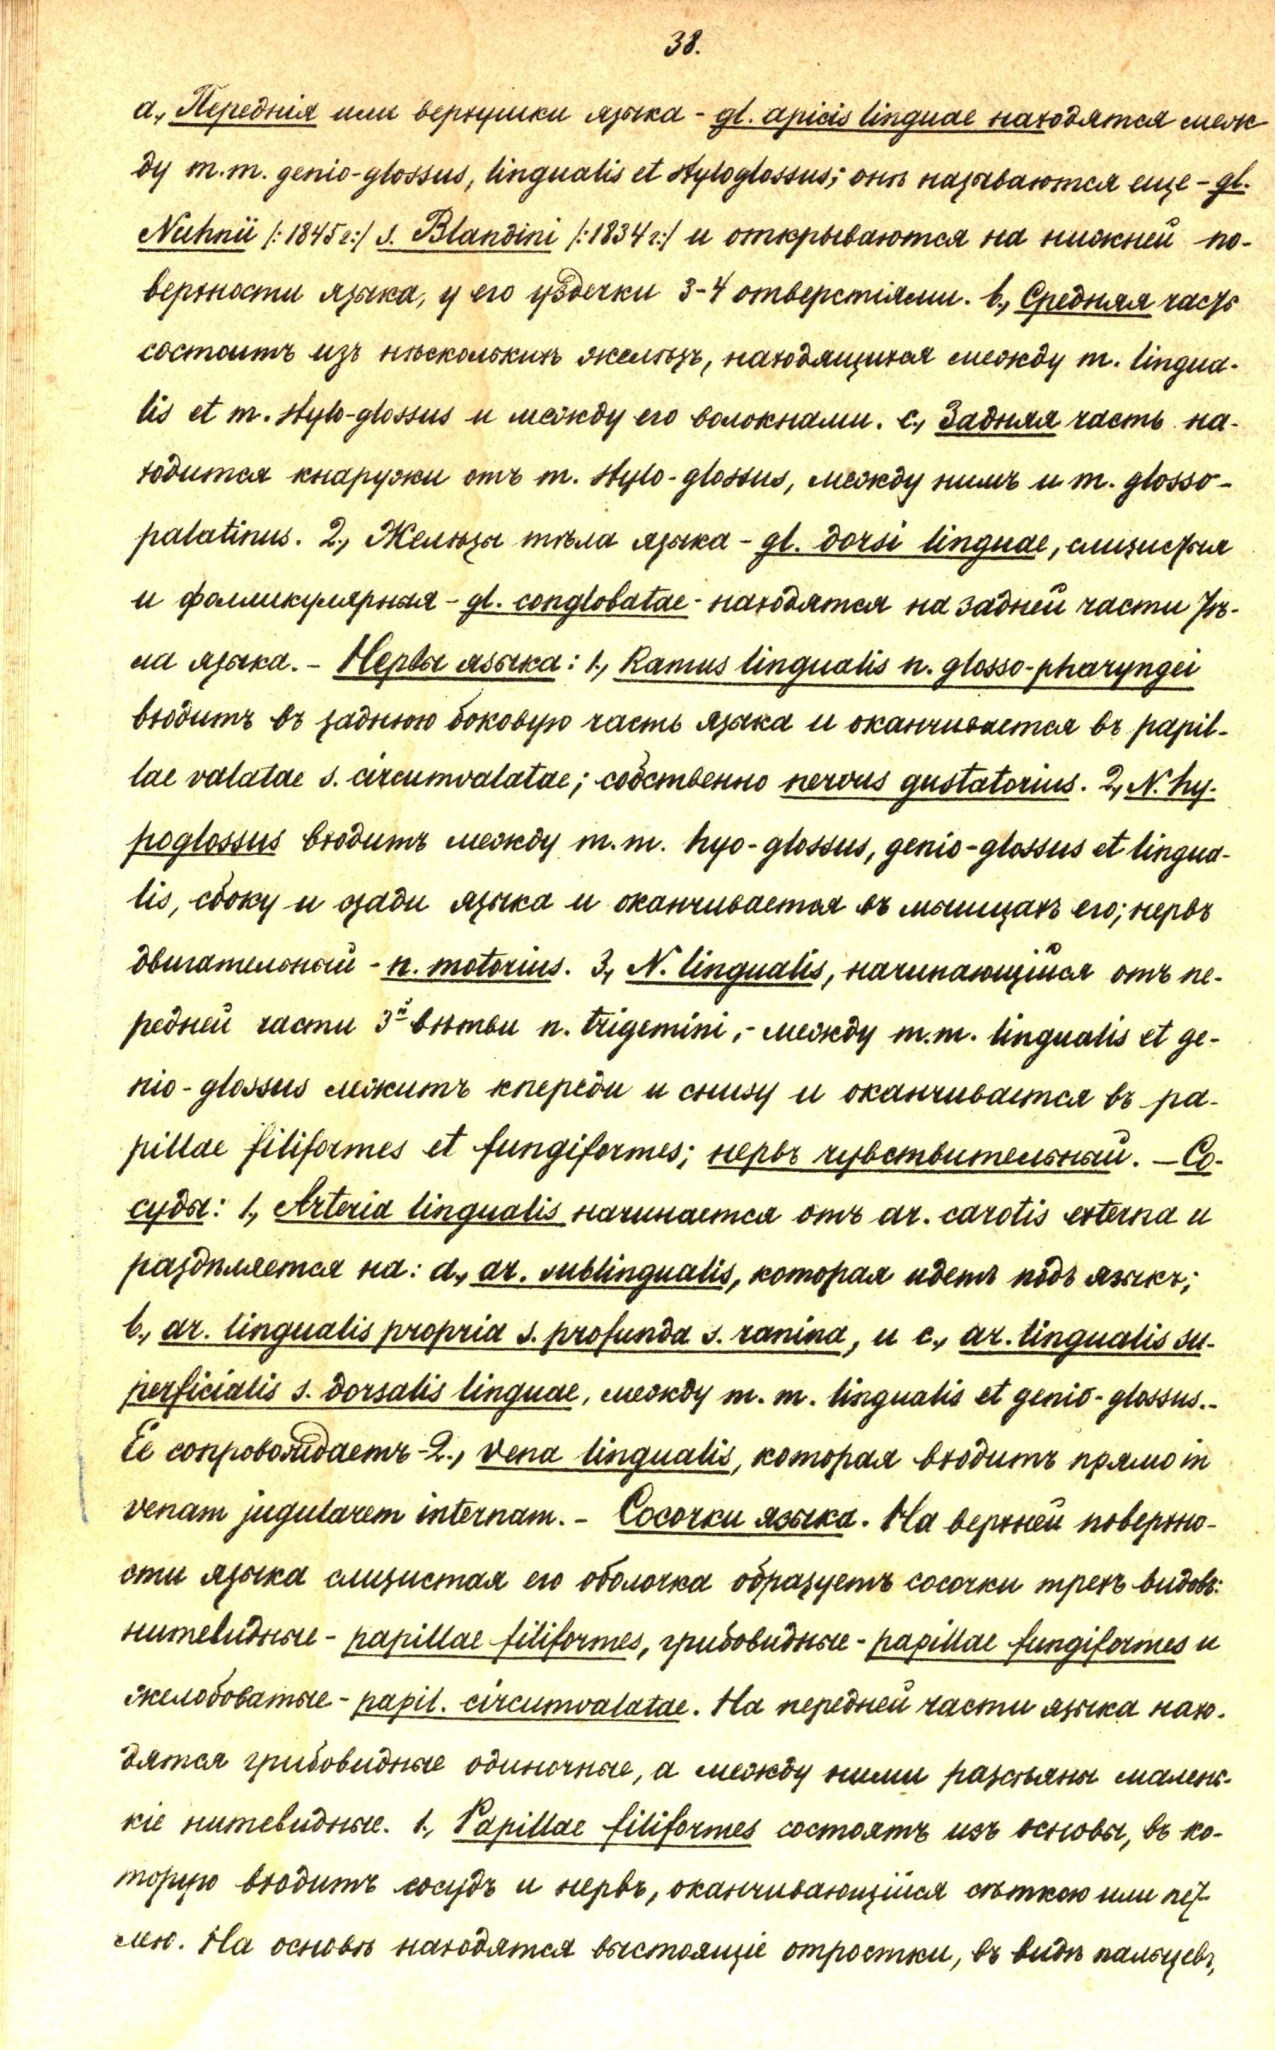 38.
а., Переднiя или верхушки языка - gl. apicis linguae находятся меж
ду m.m. genio-glossus, lingualis et styloglossus; онѣ называются еще - gl.
Nuhnii /:1845 г:/ s. Blandini /:1834 г:/ и открываются на нижней по-
верхности языка, у его уздечки 3-4 отверстіями. b., Средняя часть
состоитъ изъ нѣсколькихъ железъ, находящихся между m. lingua-
lis et m. stylo-glossus и между его волокнами. c., Задняя часть на-
ходится кнаружи отъ m. stylo-glossus, между нимъ и m. glosso-
palatinus. 2., Желѣзы тѣла языка - gl. dorsi linguae, слизистыя
и фолликулярныя - gl. conglobatae - находятся на задней части тѣ-
ла языка. - Нервы языка: 1., Ramus lingualis n. glosso-pharyngei
входитъ въ заднюю боковую часть языка и оканчивается въ papil-
lae valatae s. circumvalatae; собственно nervus gustatorius. 2., N. hy-
poglossus входитъ между m.m. hyo-glossus, genio-glossus et lingua-
lis, сбоку и сзади языка и оканчивается въ мышцахъ его; нервъ
двигательный - n. motorius. 3., N. lingualis, начинающійся отъ пе-
редней части 3й вѣтви n. trigemini, - между m.m. lingualis et ge-
nio-glossus лежитъ кпереди и снизу и оканчивается въ pa-
pillae filiformes et fungiformes; нервъ чувствительный. - Со-
суды: 1., Arteria lingualis начинается отъ ar. carotis externa и
раздѣляется на: a., ar. sublingualis, которая идетъ подъ языкъ;
b., ar. lingualis propria s. profunda s. ranina, и c., ar. lingualis su-
perficialis s. dorsalis linguae, между m. m. lingualis et genio-glossus. -
Ее сопровождаетъ - 2., vena lingualis, которая входитъ прямо in
venam jugularem internam. - Сосочки языка. На верхней поверхно-
сти языка слизистая его оболочка образуетъ сосочки трехъ видовъ:
нитевидные - papillae filiformes, грибовидные - papillae fungiformes и
желобоватые - papil. circumvalatae. На передней части языка нахо-
дятся грибовидные одиночные, а между ними разсѣяны малень-
кіе нитевидные. 1., Papillae filiformes состоятъ изъ основы, въ ко-
торую входитъ сосудъ и нервъ, оканчивающійся сѣткою или пет-
лею. На основѣ находятся выстоящіе отростки, въ видѣ пальцевъ,